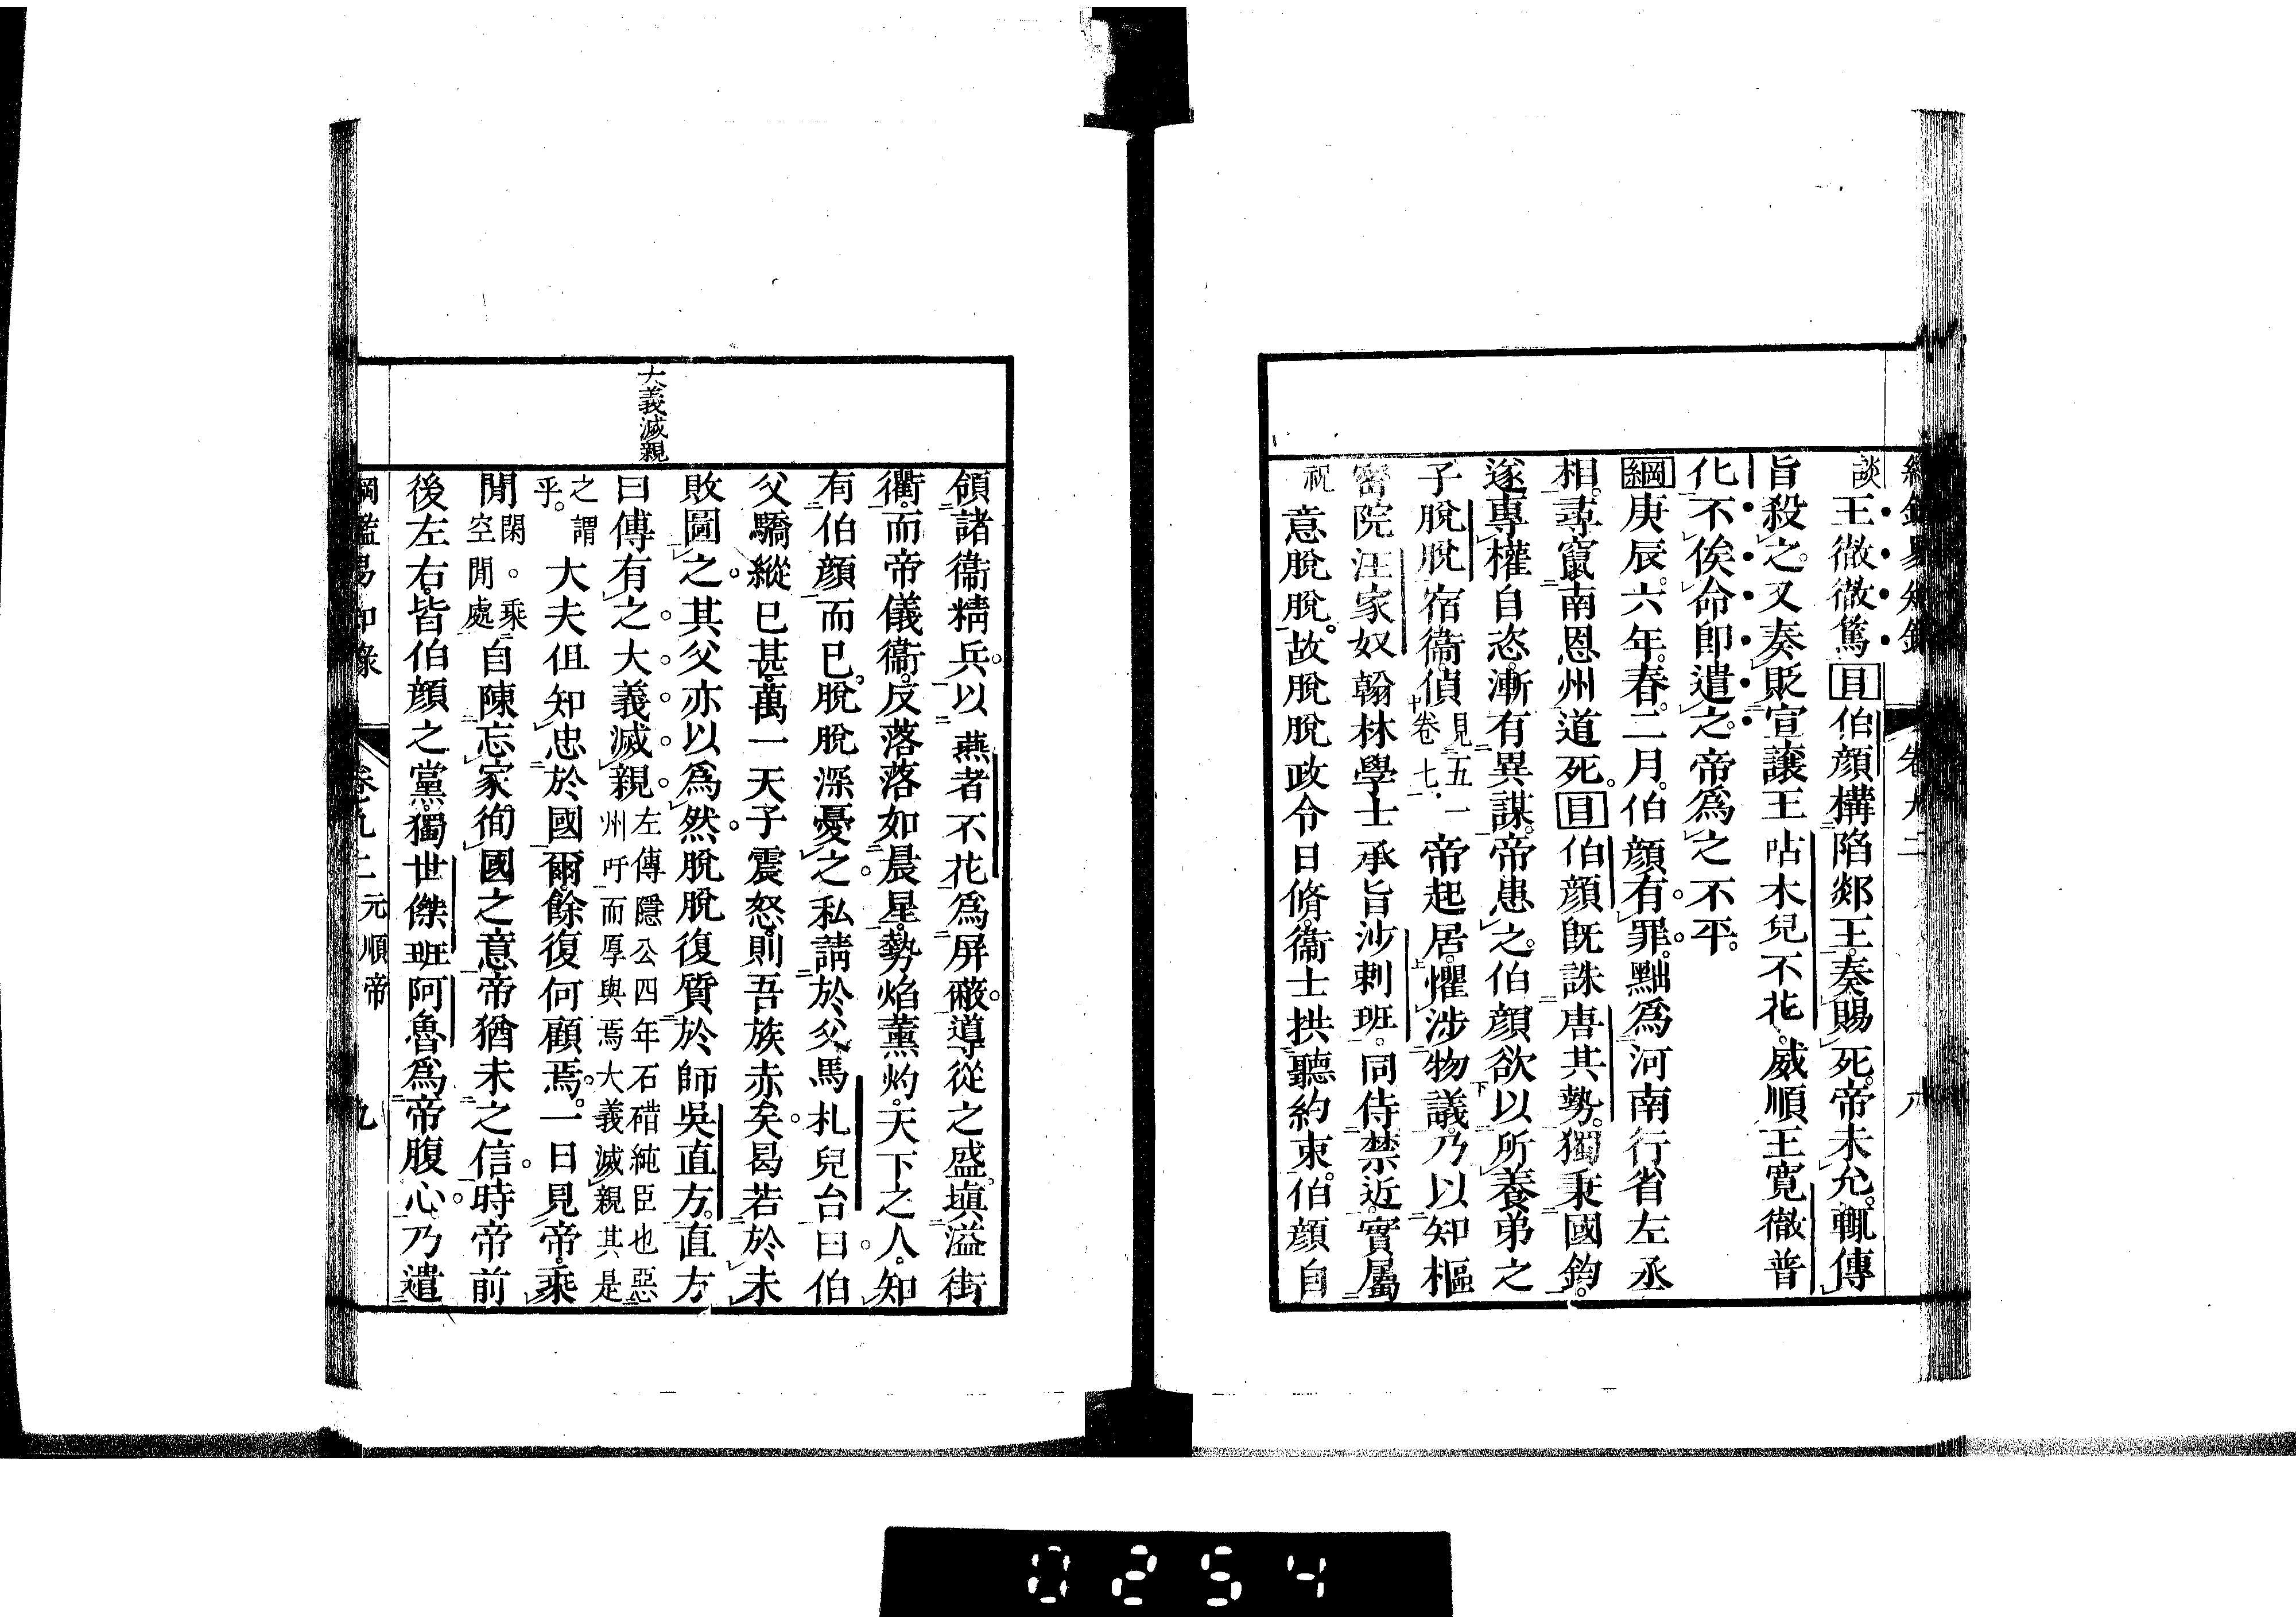 綱鑑易知錄 卷九二 八
談王徹徹篤目伯顏構陷郯王。奏賜死。帝未允。輒傳
旨殺之。又奏貶宣讓王帖木兒不花。威順王寬徹普
化不俟命即遣之。帝爲之不平。
綱庚辰。六年。春。二月。伯顏有罪。黜爲河南行省左丞
相。尋竄南恩州道死。目伯顏既誅唐其勢。獨秉國鈞。
遂專權自恣。漸有異謀。帝患之。伯顏欲以所養弟之
子脫脫宿衞。偵見五一卷七帝起居。懼涉物議。乃以知樞
密院汪家奴翰林學士承旨沙剌班。同侍禁近。實屬
祝意脫脫。故脫脫政令日脩。衞士拱聽約束。伯顏自
大義滅親
領諸衞精兵。以燕者不花爲屏蔽。導從之盛。塡溢街
衢。而帝儀衞。反落落如晨星。勢焰薰灼。天下之人。知
有伯顏而已。脫脫深憂之。私請於父馬札兒台曰。伯
父驕縱已甚。萬一天子震怒。則吾族赤矣。曷若於未
敗圖之。其父亦以爲然。脫脫復質於師吳直方。直方
曰傳有之大義滅親左傳隱公四年石碏純臣也惡州吁而厚與焉大義滅親其是
之謂乎。大夫但知忠於國爾。餘復何顧焉。一日見帝。乘
閒閑。乘空閒處自陳忘家徇國之意。帝猶未之信。時帝前
後左右。皆伯顏之黨。獨世傑班阿魯爲帝腹心。乃遣
綱鑑易知錄 卷九二 元順帝 九
0254